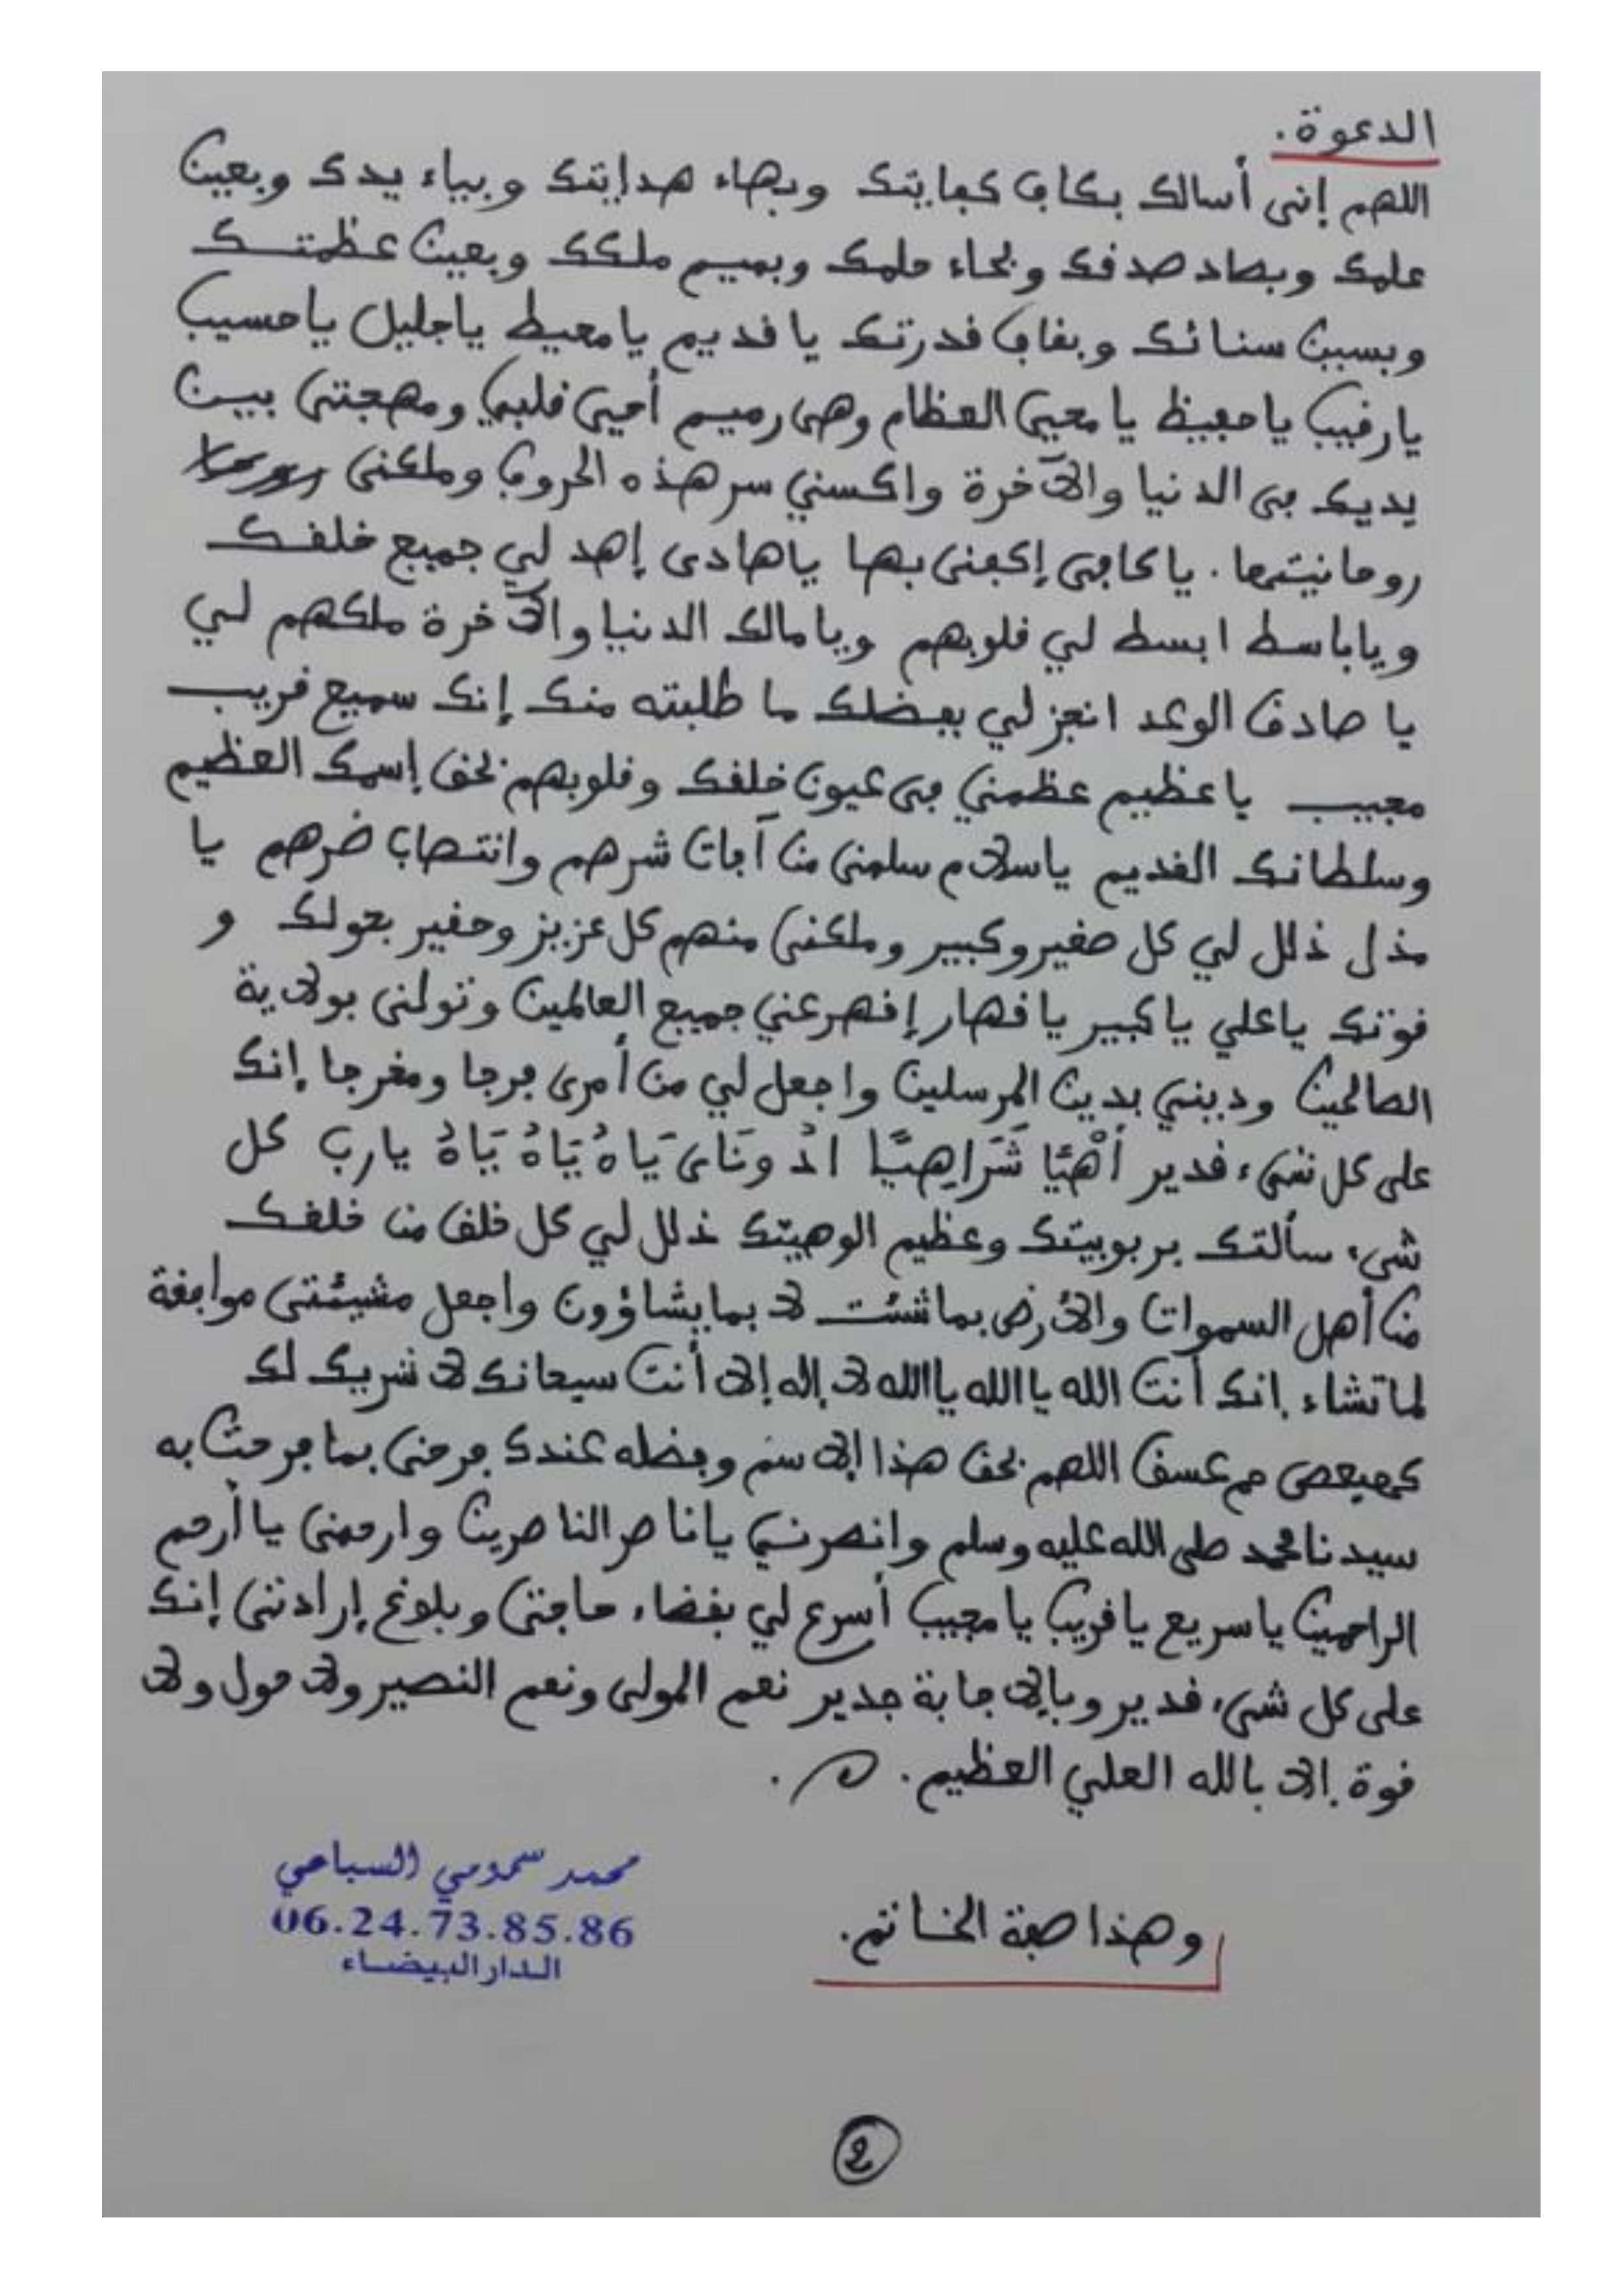 الدعوة.
اللهم إنى أسالك بكاف كفايتك وبهاء هدايتك وبياء يدك وبعين
علمك وبصاد صدقك وبحاء حلمك وبميم ملكك وبعين عظمتك
وبسين سنائك وبقاف قدرتك يا قديم يا محيط يا جليل يا حسيب
يا رقيب يا حفيظ يا محيى العظام وهى رميم أحيى قلبي ومهجتى بين
يديك فى الدنيا والآخرة واكسني سر هذه الحروف وملكنى
روحانيتها. يا كافى إكفنى بها يا هادى إهد لي جميع خلقك
ويا باسط ابسط لي قلوبهم ويا مالك الدنيا والآخرة ملكهم لي
يا صادق الوعد انجز لي بفضلك ما طلبته منك إنك سميع قريب
مجيب يا عظيم عظمني فى عيون خلقك وقلوبهم بحق إسمك العظيم
وسلطانك القديم يا سلام سلمنى من آفات شرهم وانتصاب ضرهم يا
مذل ذلل لي كل صغير وكبير وملكنى منهم كل عزيز وحقير بحولك و
قوتك يا علي يا كبير يا قهار إقهر عني جميع العالمين وتولنى بولاية
الصالحين ودينني بدين المرسلين واجعل لي من أمرى فرجا ومخرجا إنك
على كل شىء قدير أَهْيًا شَرَاهِيًا ادْونَاى يَاهُ يَاهُ يَاهُ يا رب كل
شىء سألتك بربوبيتك وعظيم الوهيتك ذلل لي كل خلق من خلقك
من أهل السموات والأرض بما شئت لا بما يشاؤون واجعل مشيئتى موافقة
لما تشاء إنك أنت الله يا الله يا الله لا إله إلا أنت سبحانك لا شريك لك
كهيعص حم عسق اللهم بحق هذا الإسم وفضله عندك فرحنى بما فرحت به
سيدنا محمد صلى الله عليه وسلم وانصرنى يا ناصر الناصرين وارحمنى يا أرحم
الراحمين يا سريع يا قريب يا مجيب أسرع لي بقضاء حاجتى وبلوغ إرادتى إنك
على كل شىء قدير وبالإجابة جدير نعم المولى ونعم النصير ولا حول ولا
قوة إلا بالله العلي العظيم.
محمد سمومي السباعي
06.24.73.85.86
الدار البيضاء
وهذا صفة الخاتم.
2